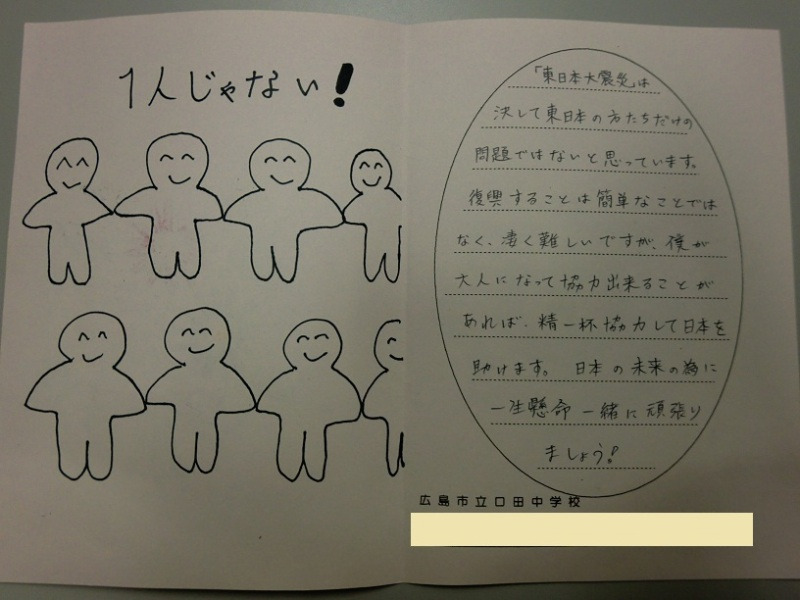 1人じゃない!
「東日本大震災」は
決して東日本の方たちだけの
問題ではないと思っています。
復興することは簡単なことでは
なく、凄く難しいですが、僕が
大人になって協力出来ることが
あれば、精一杯協力して日本を
助けます。 日本の未来の為に
一生懸命 一緒に頑張り
ましょう!
広島市立口田中学校